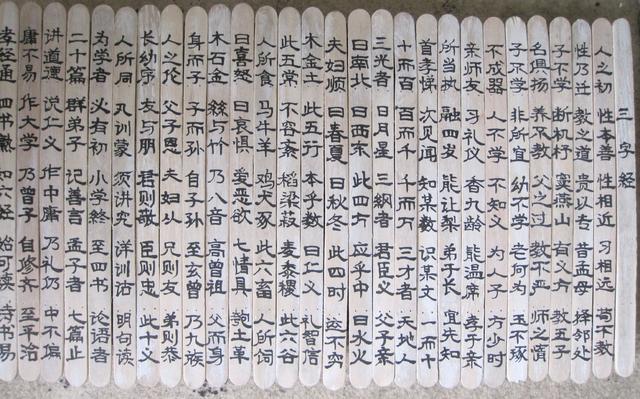 三字经
人之初 性本善 性相近 习相远 苟不教
性乃迁 教之道 贵以专 昔孟母 择邻处
子不学 断机杼 窦燕山 有义方 教五子
名俱扬 养不教 父之过 教不严 师之惰
子不学 非所宜 幼不学 老何为 玉不琢
不成器 人不学 不知义 为人子 方少时
亲师友 习礼仪 香九龄 能温席 孝于亲
所当执 融四岁 能让梨 弟于长 宜先知
首孝悌 次见闻 知某数 识某文 一而十
十而百 百而千 千而万 三才者 天地人
三光者 日月星 三纲者 君臣义 父子亲
曰南北 曰西东 此四方 应乎中 曰水火
夫妇顺 曰春夏 曰秋冬 此四时 运不穷
木金土 此五行 本乎数 曰仁义 礼智信
此五常 不容紊 稻粱菽 麦黍稷 此六谷
人所食 马牛羊 鸡犬豕 此六畜 人所饲
曰喜怒 曰哀惧 爱恶欲 七情具 匏土革
木石金 丝与竹 乃八音 高曾祖 父而身
身而子 子而孙 自子孙 至玄曾 乃九族
人之伦 父子恩 夫妇从 兄则友 弟则恭
长幼序 友与朋 君则敬 臣则忠 此十义
人所同 凡训蒙 须讲究 详训诂 明句读
为学者 必有初 小学终 至四书 论语者
二十篇 群弟子 记善言 孟子者 七篇止
讲道德 说仁义 作中庸 乃礼仍 中不偏
庸不易 作大学 乃曾子 自修齐 至平治
孝经通 四书熟 如六经 始可读 诗书易